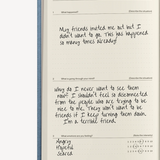 My friends invited me out but I
didn't want to go. This has happened
so many times already!
Why do I never want to see them
now? I shouldn't feel so disconnected
from the people who are trying to be
nice to me. They won't want to be
friends if I keep turning them down.
I'm a terrible friend.
Angry
Hopeful
Scared